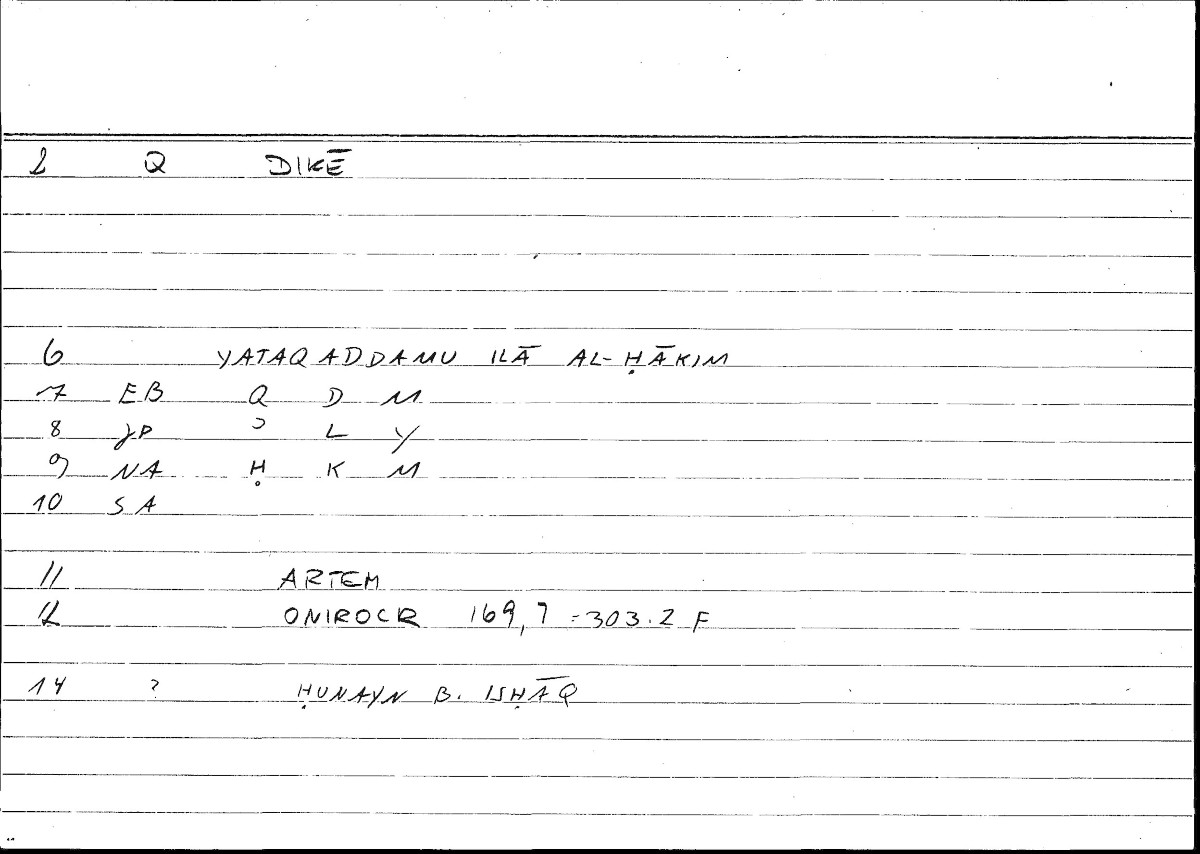 2 Q DIKĒ
6 YATAQADDAMU ILĀ AL-ḤĀKIM
7 EB Q D M
8 JP ʾ L Y
9 NA Ḥ K M
10 SA
11 ARTEM
12 ONIROCR 169,7 = 303.2 F
14 ? ḤUNAYN B. ISḤĀQ